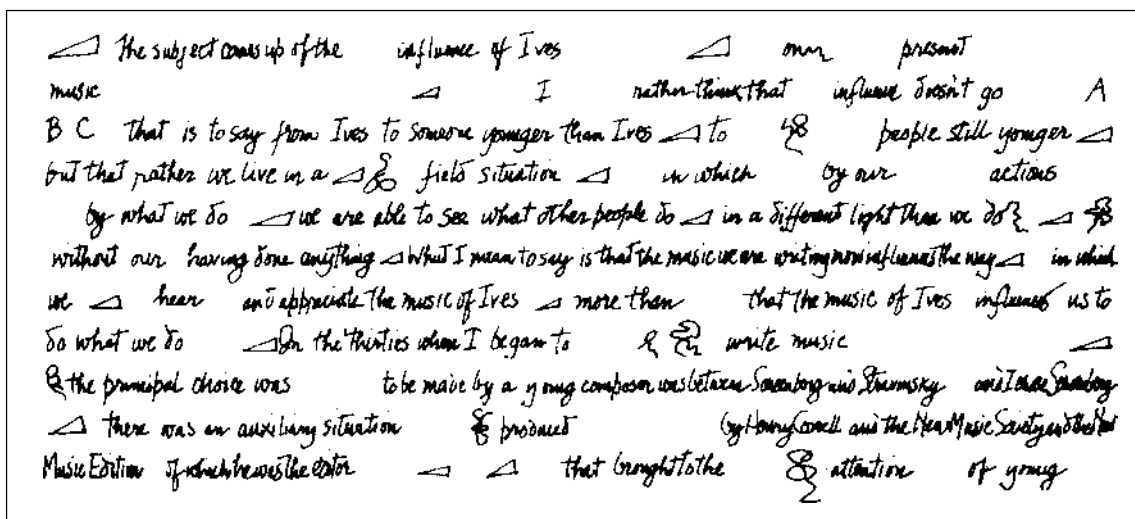 The subject comes up of the influence of Ives on present
music I rather think that influence doesn't go A
B C that is to say from Ives to someone younger than Ives to people still younger
but that rather we live in a field situation in which by our actions
by what we do we are able to see what other people do in a different light than we do
without our having done anything What I mean to say is that the music we are writing now influences the way in which
we hear and appreciate the music of Ives more than that the music of Ives influences us to
do what we do In the thirties when I began to write music
the principal choice was to be made by a young composer was between Schoenberg and Stravinsky and I chose Schoenberg
there was an auxiliary situation produced by Henry Cowell and the New Music Society and the New
Music Edition of which he was the editor that brought to the attention of young